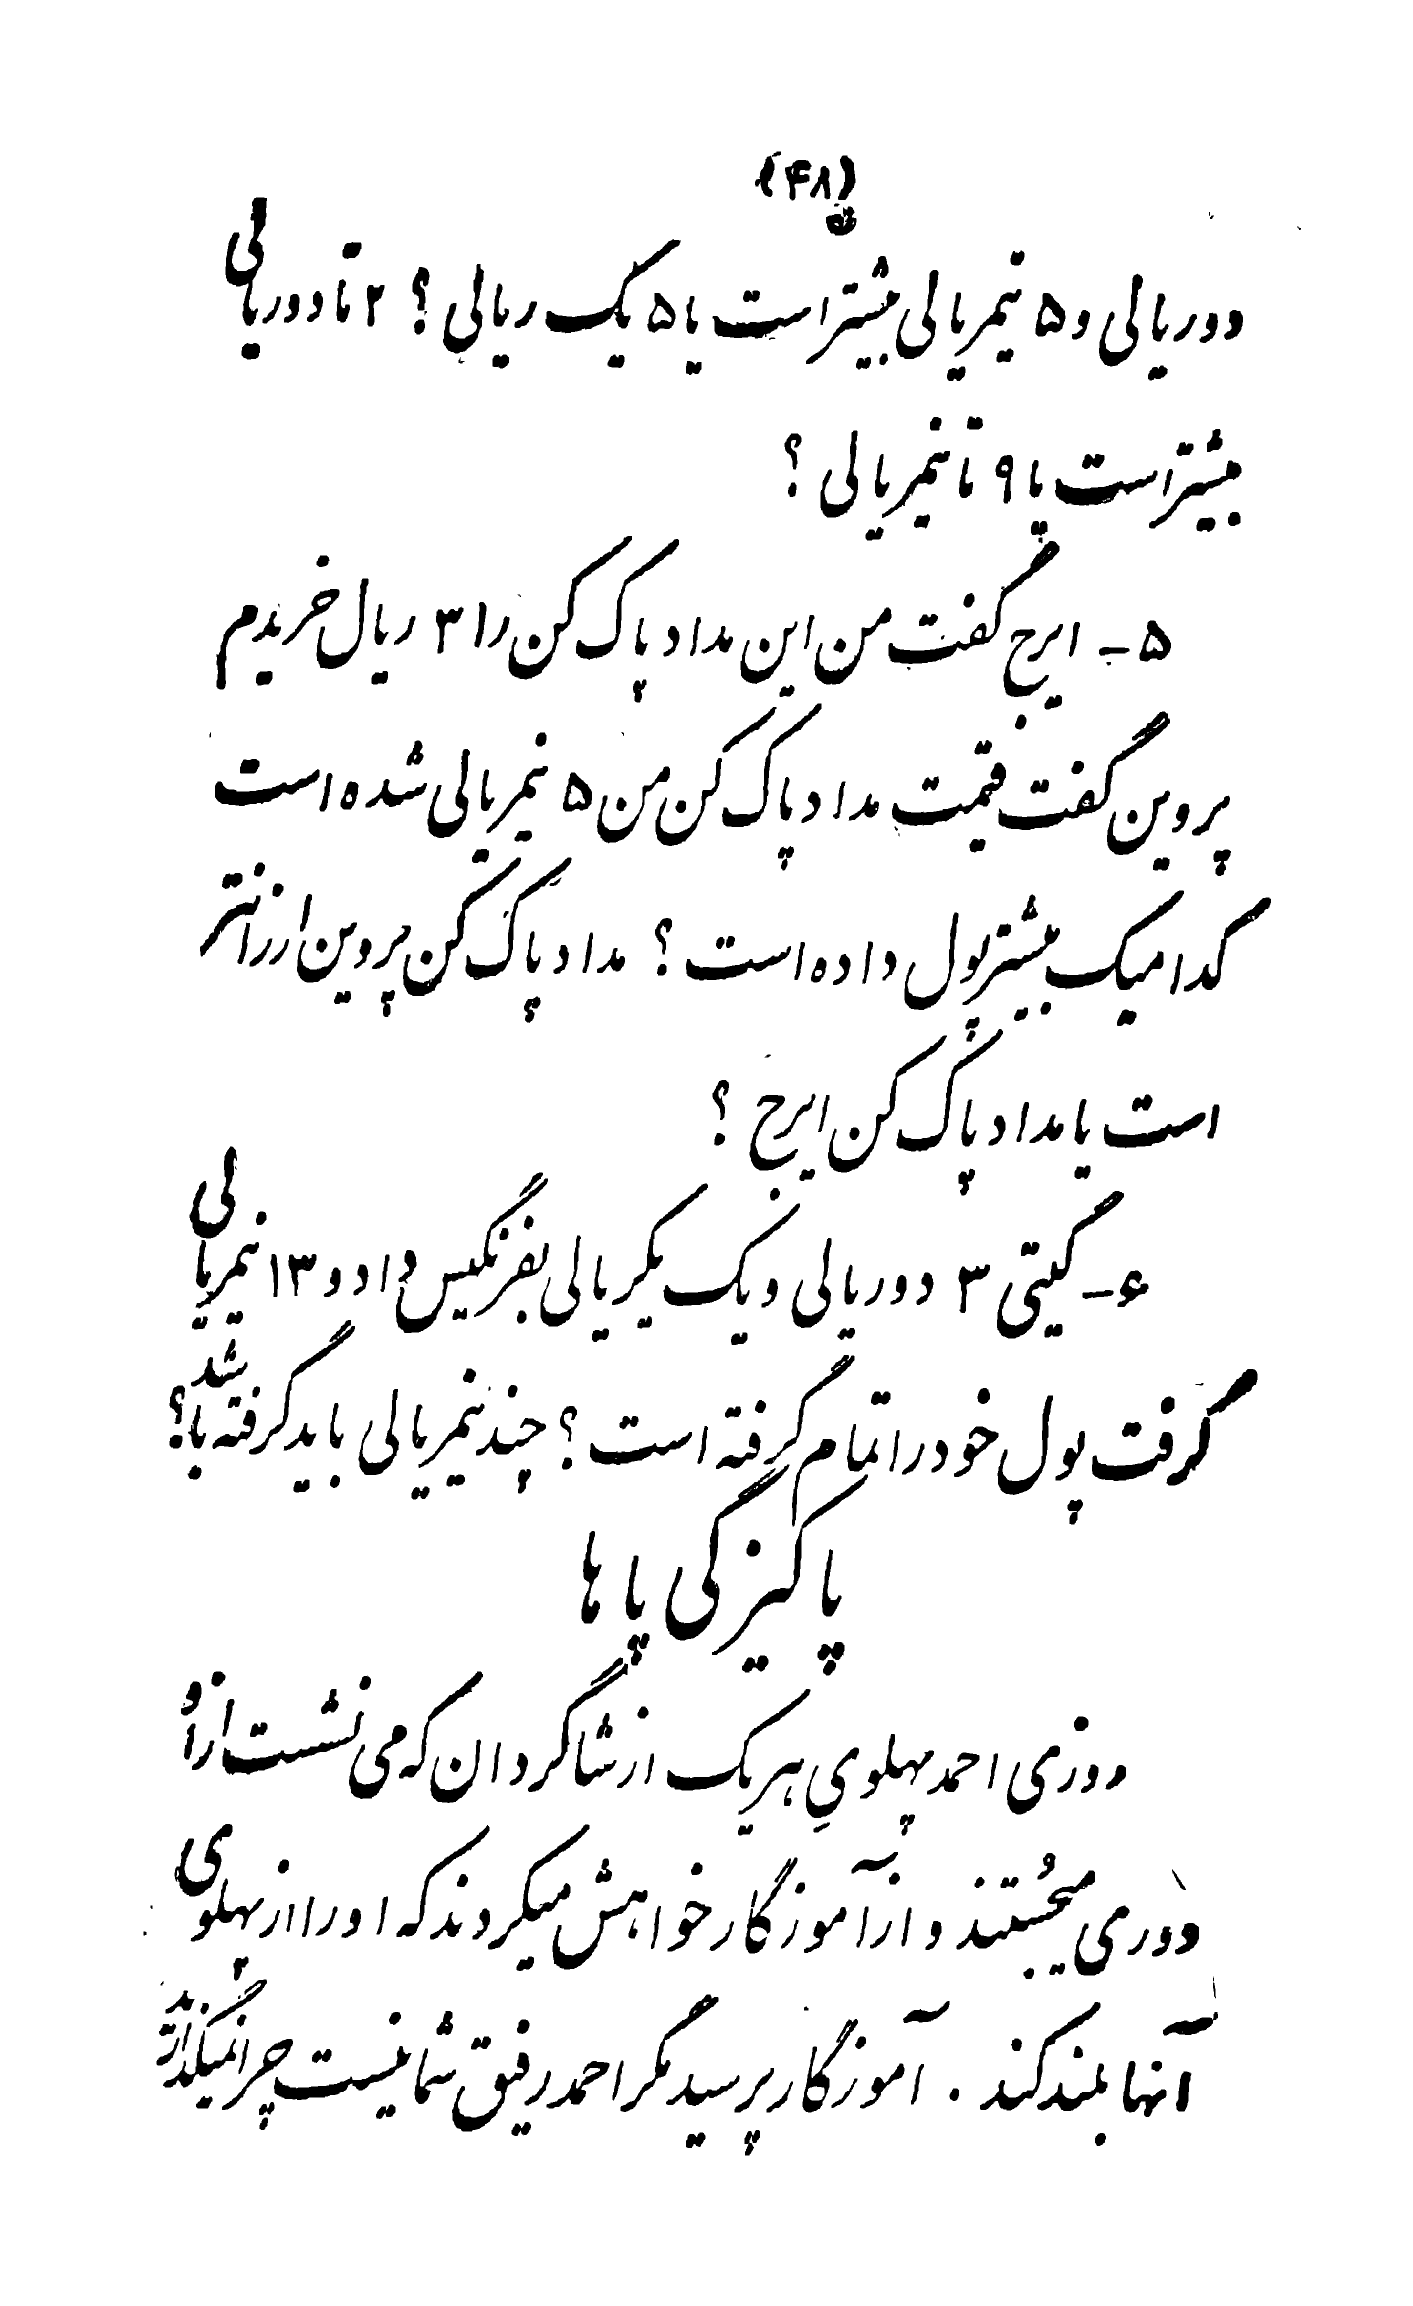 (۴۸)
دوریالی و ۵ نیمریالی بیشتر است یا ۵ یک ریالی ؟ ۲ تا دوریالی
بیشتر است یا ۹ تا نیمریالی ؟
۵ - ایرج گفت من این مداد پاک کن را ۳ ریال خریدم
پروین گفت قیمت مداد پاک کن من ۵ نیمریالی شده است
کدامیک بیشتر پول داده است ؟ مداد پاک کن پروین ارزانتر
است یا مداد پاک کن ایرج ؟
۶ - گیتی ۳ دوریالی و یک یکریالی بفرنگیس داد و ۱۳ نیمریالی
گرفت پول خود را تمام گرفته است ؟ چند نیمریالی باید گرفته باشد ؟
پاکیزگی پاها
روزی احمد پهلویِ هر یک از شاگردان که می نشست از او
دوری میجُستند و از آموزگار خواهش میکردند که او را از پهلوی
آنها بلند کند . آموزگار پرسید مگر احمد رفیق شما نیست چرا نمیگذارید